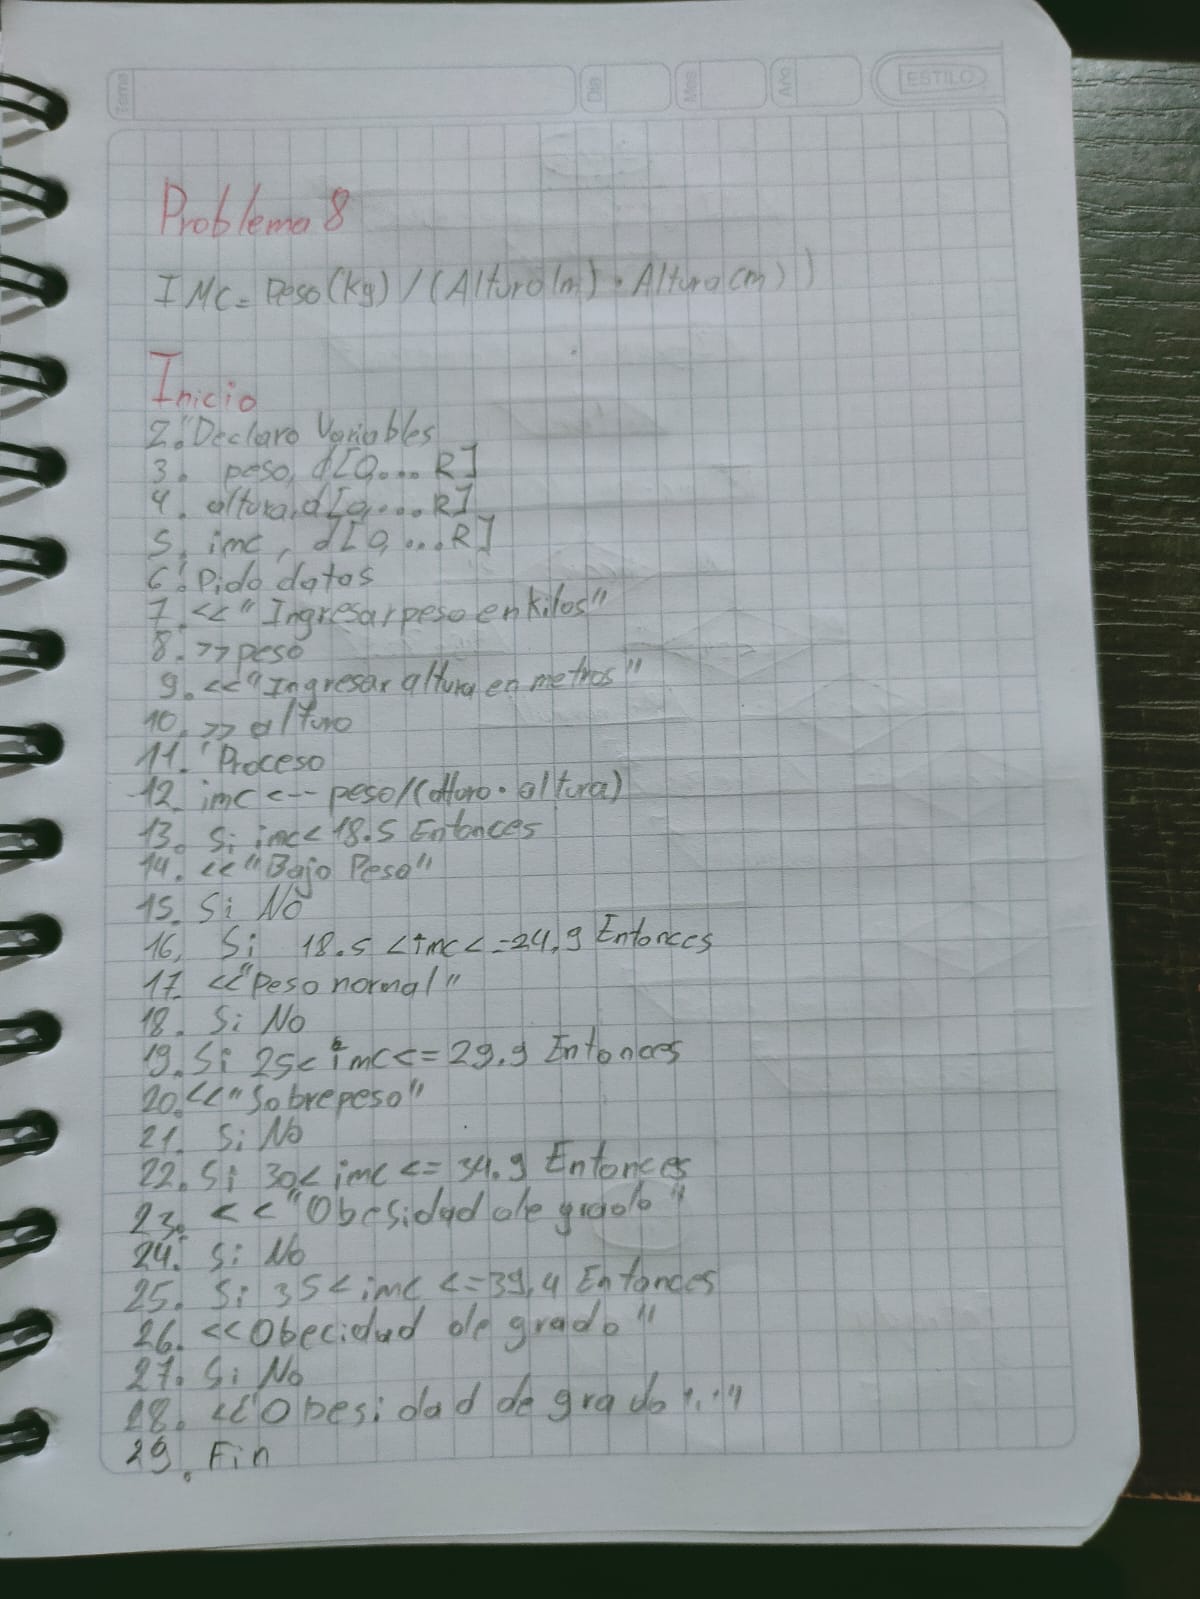 Tema
Dia
Mes
Año
ESTILO
Problema 8
IMC= Peso(kg)/(Altura(m)·Altura(m))
Inicio
2.'Declaro Variables
3. peso, d[0,...R]
4. altura, d[0,...R]
5. imc, d[0,...R]
6.'Pido datos
7. <<"Ingresar peso en kilos"
8. >>peso
9. <<"Ingresar altura en metros"
10. >> altura
11. 'Proceso
12. imc <-- peso/(altura·altura)
13. Si imc< 18.5 Entonces
14. <<"Bajo Peso"
15. Si No
16. Si 18.5 <imc<=24.9 Entonces
17. <<"Peso normal"
18. Si No
19. Si 25< imc<= 29.9 Entonces
20.<<"Sobrepeso"
21. Si No
22. Si 30< imc <= 34.9 Entonces
23. <<"Obesidad de grado"
24. Si No
25. Si 35< imc <=39,4 Entonces
26. <<Obecidad de grado"
27. Si No
28. <<Obesidad de grado
29. Fin